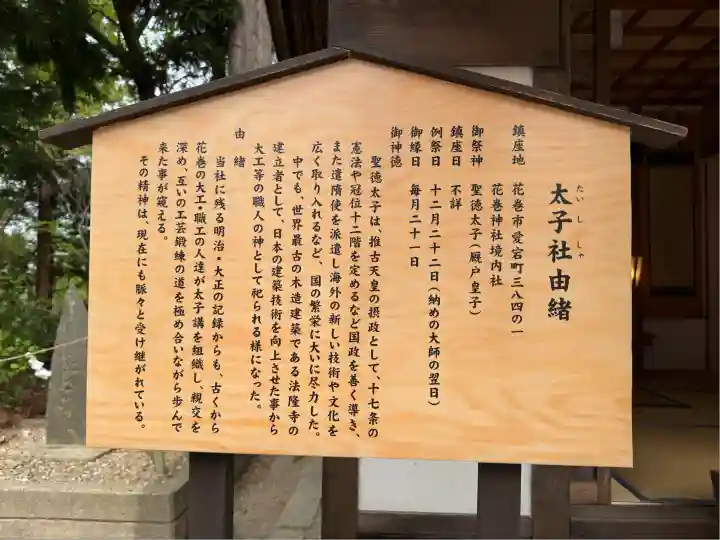 太子社由緒
たいししゃ
鎮座地 花巻市愛宕町三八四の一
花巻神社境内社
御祭神 聖徳太子（厩戸皇子）
鎮座日 不詳
例祭日 十二月二十二日（納めの大師の翌日）
御縁日 毎月二十一日
御神徳
聖徳太子は、推古天皇の摂政として、十七条の
憲法や冠位十二階を定めるなど国政を善く導き、
また遣隋使を派遣し海外の新しい技術や文化を
広く取り入れるなど、国の繁栄に大いに尽力した。
中でも、世界最古の木造建築である法隆寺の
建立者として、日本の建築技術を向上させた事から
大工等の職人の神として祀られる様になった。
由緒
当社に残る明治・大正の記録からも、古くから
花巻の大工・職工の人達が太子講を組織し、親交を
深め、互いの工芸鍛練の道を極め合いながら歩んで
来た事が窺える。
その精神は、現在にも脈々と受け継がれている。